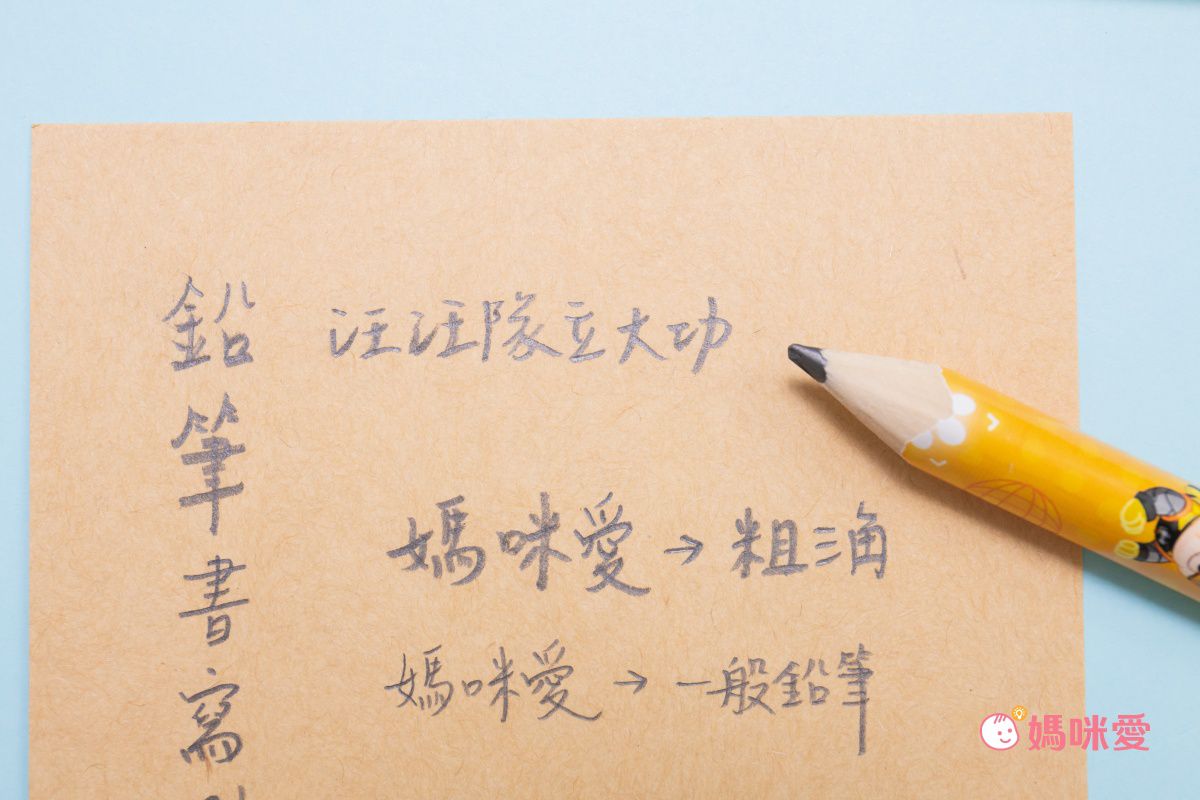 鉛筆書寫
汪汪隊立大功
媽咪愛→粗三角
媽咪愛→一般鉛筆
媽咪愛